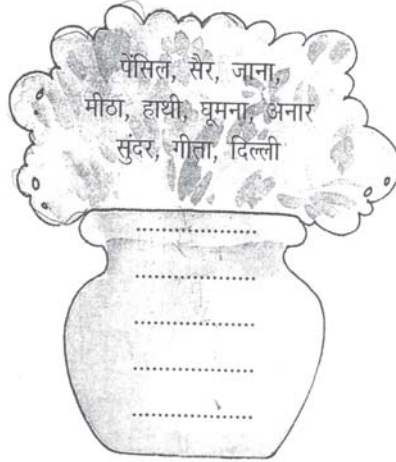 पेंसिल, सैर, जाना,
मीठा, हाथी, घूमना, अनार
सुंदर, गीता, दिल्ली